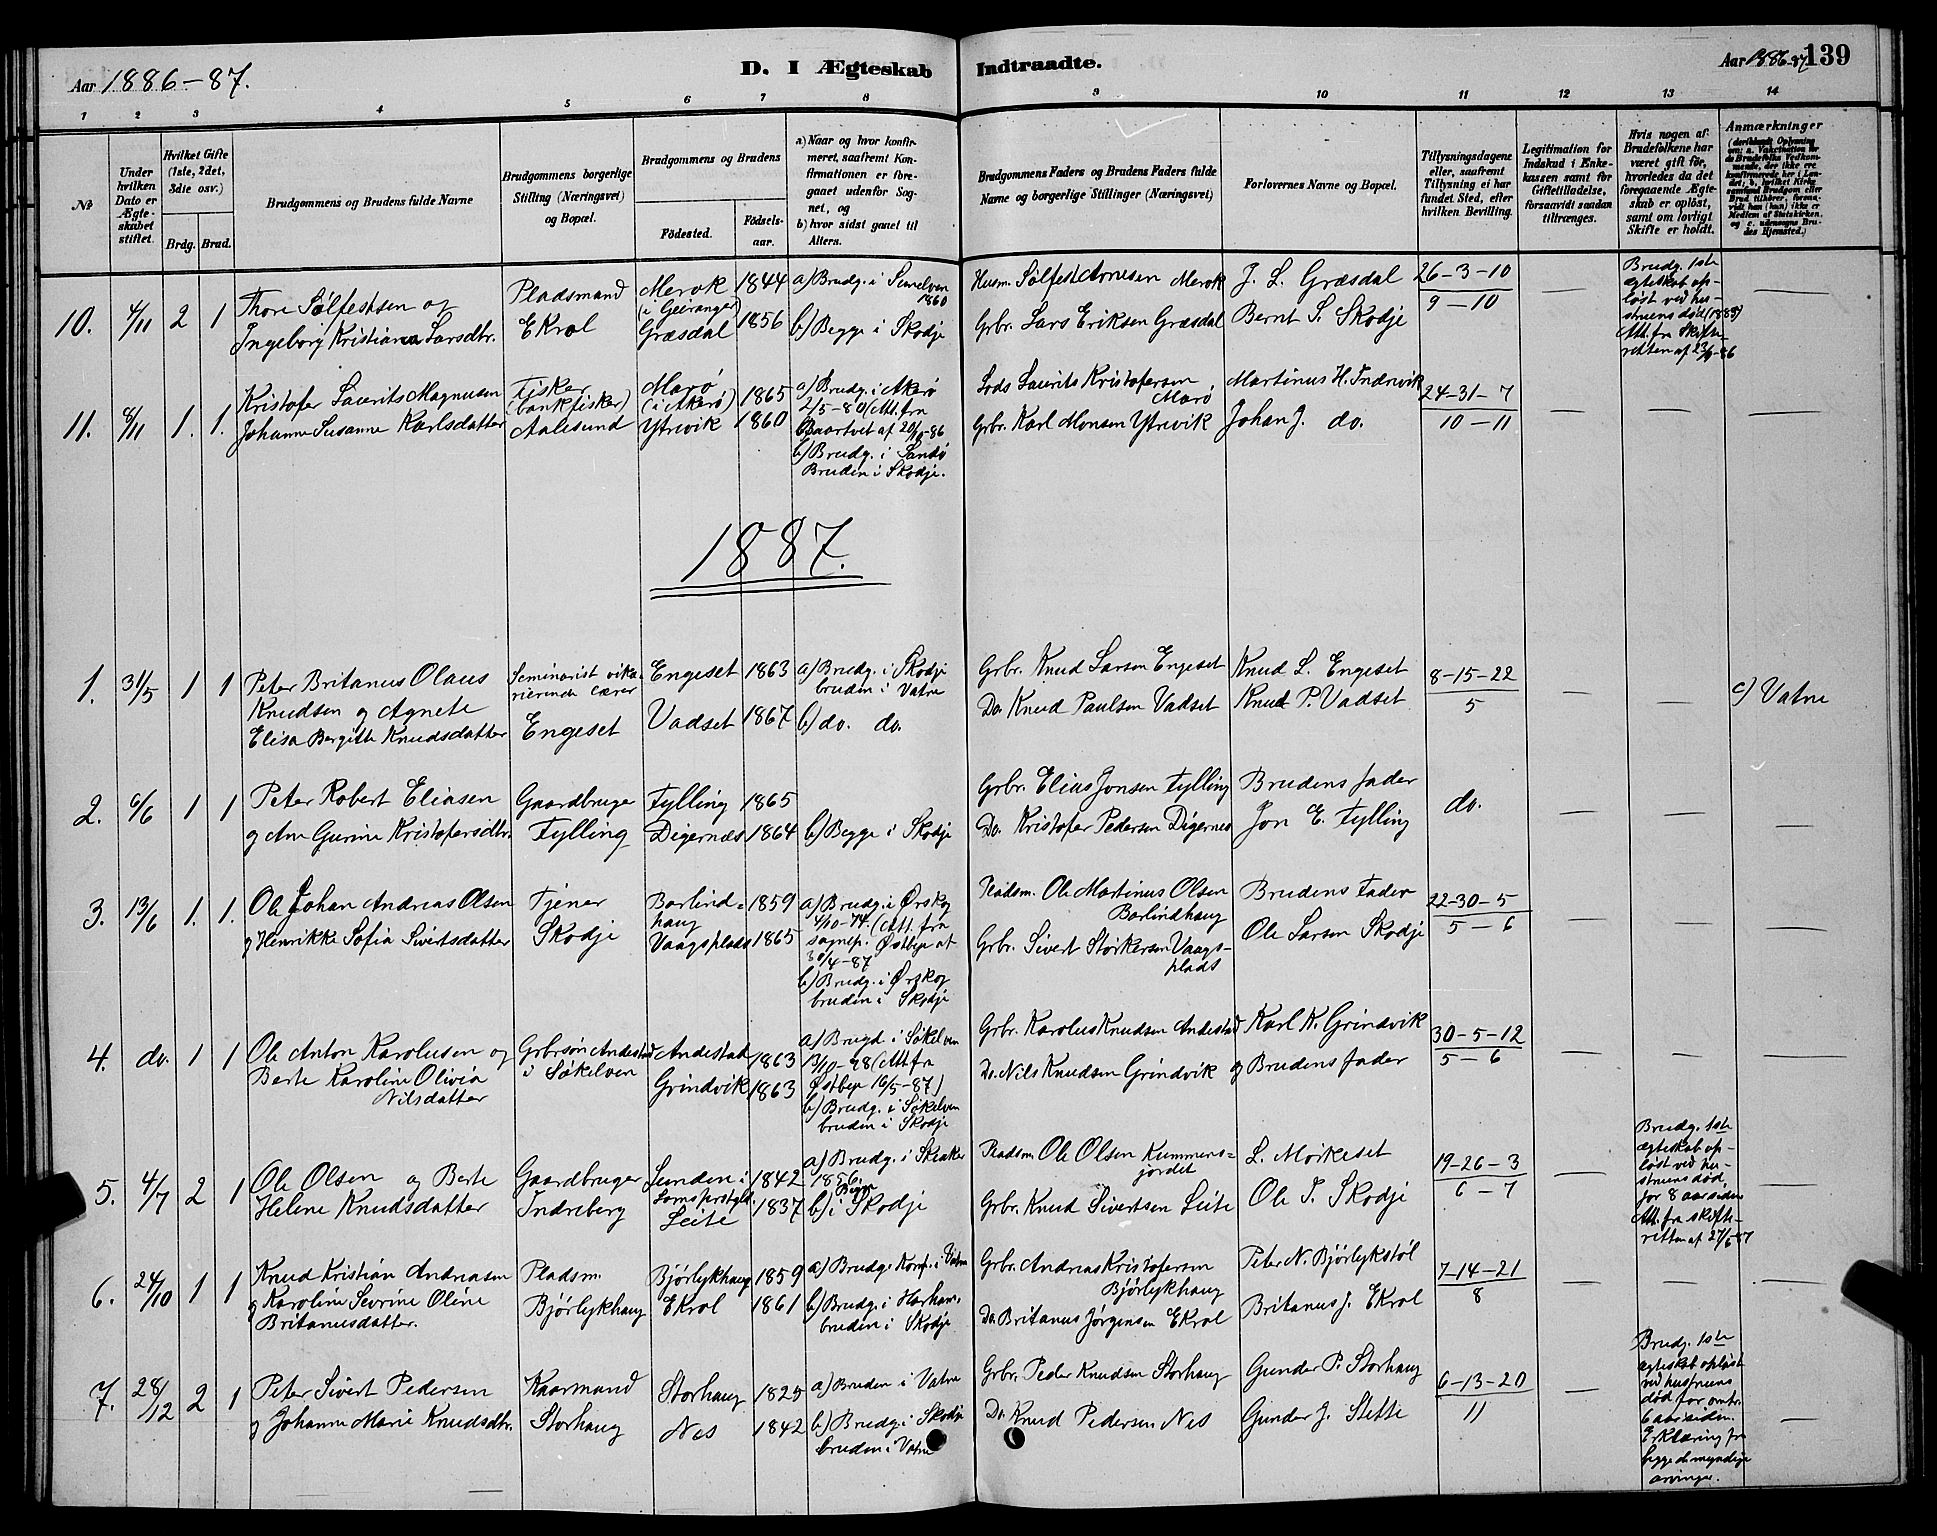 Aar 1886-87.
D. I Ægteskab Indtraadte.
Aar 1886-87 139
1 2 3 4 5 6 7 8 9 10 11 12 13 14
№
Under hvilken Dato er Ægteskabet stiftet.
Hvilket Gifte (1ste, 2det, 3die osv.)
Brdg. Brud.
Brudgommens og Brudens fulde Navne
Brudgommens borgerlige Stilling (Næringsvei) og Bopæl.
Brudgommens og Brudens
Födested. Födsels-aar.
a) Naar og hvor konfirmeret, saafremt Konfirmationen er foregaaet udenfor Sognet, og
b) hvor sidst gaaet til Alters.
Brudgommens Faders og Brudens Faders fulde Navne og borgerlige Stillinger (Næringsvei)
Forlovernes Navne og Bopæl.
Tillysningsdagene eller, saafremt Tillysning ei har fundet Sted, efter hvilken Bevilling.
Legitimation for Indskud i Enkekassen samt for Giftetilladelse, forsaavidt saadan tiltrænges.
Hvis nogen af Brudefolkene har været gift för, hvorledes da det foregaaende Ægteskab er oplöst, samt om lovligt Skifte er holdt.
Anmærkninger
10. 4/11 2 1
Thore Sölfestsen og
Ingeborg Kristiana Larsdtr.
Pladsmand
Ekrol
Merok (i Geiranger) 1844
Græsdal 1856
a) Brudg. i Sunelven 1860
b) Begge i Skodje
Husm. Sölfest Arnesen Merok
Grbr. Lars Eriksen Græsdal
J. L. Græsdal
Bernt S. Skodje
26-3-10
9-10
—
Brudg. 1ste
ægteskab op-
löst ved hu-
struens död (1883)
Att. fra Skifte-
retten af 23/9-86
—
11. 8/11 1. 1.
Kristofer Laurits Magnusen
Johanne Susanne Karlsdatter
Fisker
(bankfisker)
Aalesund
Marö (i Akerö) 1865
Ytrevik 1860
a) Brudg. i Akerö
2/5-80 (Att. fra
af 20/10-86
b) Brudg. i Sandö
Bruden i Skodje.
Lods Laurits Kristofersen Marö
Grbr. Karl Monsen Ytrevik
Martinus H. Indrevik
Johan J. do.
24-31-7
10-11
— — —
1887.
1. 31/5 1 1
Peter Britanus Olaus
Knudsen og Agnete
Elisa Bergitte Knudsdatter
Seminarist vika-
rierende lærer
Engeset
Engeset 1863
Vadset 1867
a) Brudg. i Skodje
bruden i Vatne
b) do. do.
Grbr. Knud Larsen Engeset
Do. Knud Paulsen Vadset
Knud L. Engeset
Knud P. Vadset
8-15-22
5
— —
c) Vatne
2. 6/6 1 1
Peter Robert Eliasen
og Ane Gurine Kristofersdtr.
Gaardbruger
Fylling
Fylling 1865
Digernæs 1864
b) Begge i Skodje
Grbr. Elias Jonsen Fylling
Do. Kristofer Pedersen Digernes
Brudens fader
Jon E. Fylling
do.
— — —
3. 13/6 1. 1.
Ole Johan Andreas Olsen
og Henrikke Sofia Sivertsdatter
Tjener
Skodje
Barlind-
haug 1859
Vaagsplads 1865
a) Brudg. i Ørskog
4/10-74. (Att. fra
sognep. Østbye af
30/4-87
b) Brudg. i Ørskog
bruden i Skodje
Pladsm. Ole Martinus Olsen
Barlindhaug
Grbr. Sivert Storkersen Vaags-
plads
Brudens Fader
Ole Larsen Skodje
22-30-5
5-6
— — —
4. do. 1 1
Ole Anton Karolusen og
Berte Karoline Olivia
Nilsdatter
Grbrsön Andestad
i Sökelven
Andestad 1863
Grindvik 1863
a) Brugd i Sökelven
13/10-78 (Att. fra
Østbye 16/5-87)
b) Brudg. i Sökelven
bruden i Skodje
Grbr. Karolus Knudsen Andestad
Do. Nils Knudsen Grindvik
Karl K. Grindvik
og Brudens fader
30-5-12
5-6
— — —
5. 4/7 2 1
Ole Olsen og Berte
Helene Knudsdatter
Gaardbruger
Indreberg
Sunden i
Lomsprstgld. 1842
Leite 1837
a) Brudg. i Skeaker
1856.
b) Begge i Skodje
Pladsm. Ole Olsen Kummens-
jordet
Grbr. Knud Sivertsen Leite
L. Mörkeset
Ole P. Skodje
19-26-3
6-7
—
Brudg. 1ste
ægteskab op-
löst ved hu-
struens död,
for 8 aar siden
Att. fra skifte-
retten af 27/6 87
—
6. 24/10 1 1
Knud Kristian Andreasen
og Karoline Sevrine Oline
Britanusdatter.
Pladsm.
Björlykhaug
Björlykhaug 1859
Ekrol 1861
a) Brudg. Konf. i Vatne
b) Brudg. i Harham.
bruden i Skodje
Grbr. Andreas Kristofersen
Björlykhaug
Do. Britanus Jörgensen Ekrol
Peter N. Björlykstöl
Britanus J. Ekrol
7-14-21
8
— — —
7. 28/12 2 1
Peter Sivert Pedersen
og Johanne Marie Knudsdtr.
Kaarmand
Storhaug
Storhaug 1825
Nes 1842
a) Bruden i Vatne
b) Brudg. i Skodje
bruden i Vatne
Grbr. Peder Knudsen Storhaug
Do. Knud Pedersen Nes
Gunder P. Storhaug
Gunder J. Stette
6-13-20
11
—
Brudg. 1ste
ægteskab oplöst
ved hustruens
död for omtr.
6 aar siden.
Erklæring fra
begge de myndige
arvinger.
—